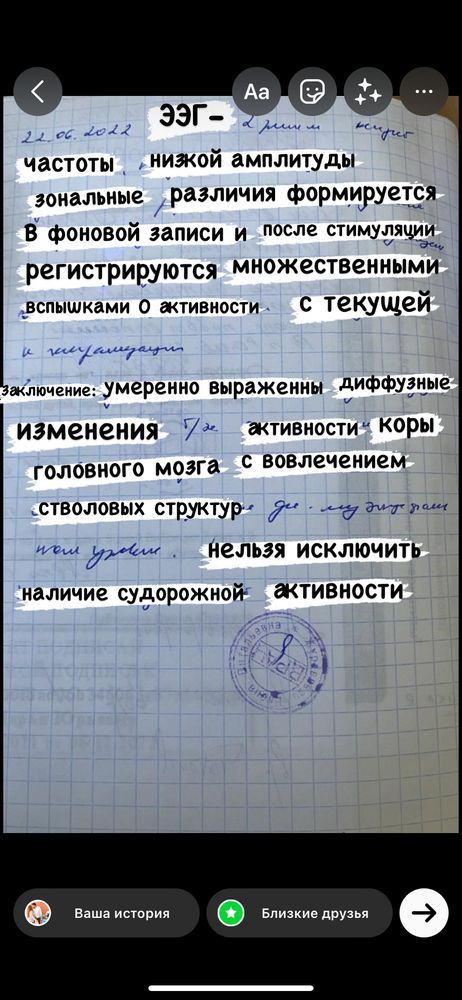 Aa
22.06.2022 ЭЭГ-
частоты низкой амплитуды
зональные различия формируется
В фоновой записи и после стимуляции
регистрируются множественными
вспышками О активности с текущей
к генерализации
заключение: умеренно выраженны диффузные
изменения активности коры
головного мозга с вовлечением
стволовых структур
ном уровне. нельзя исключить
наличие судорожной активности
Ваша история
Близкие друзья